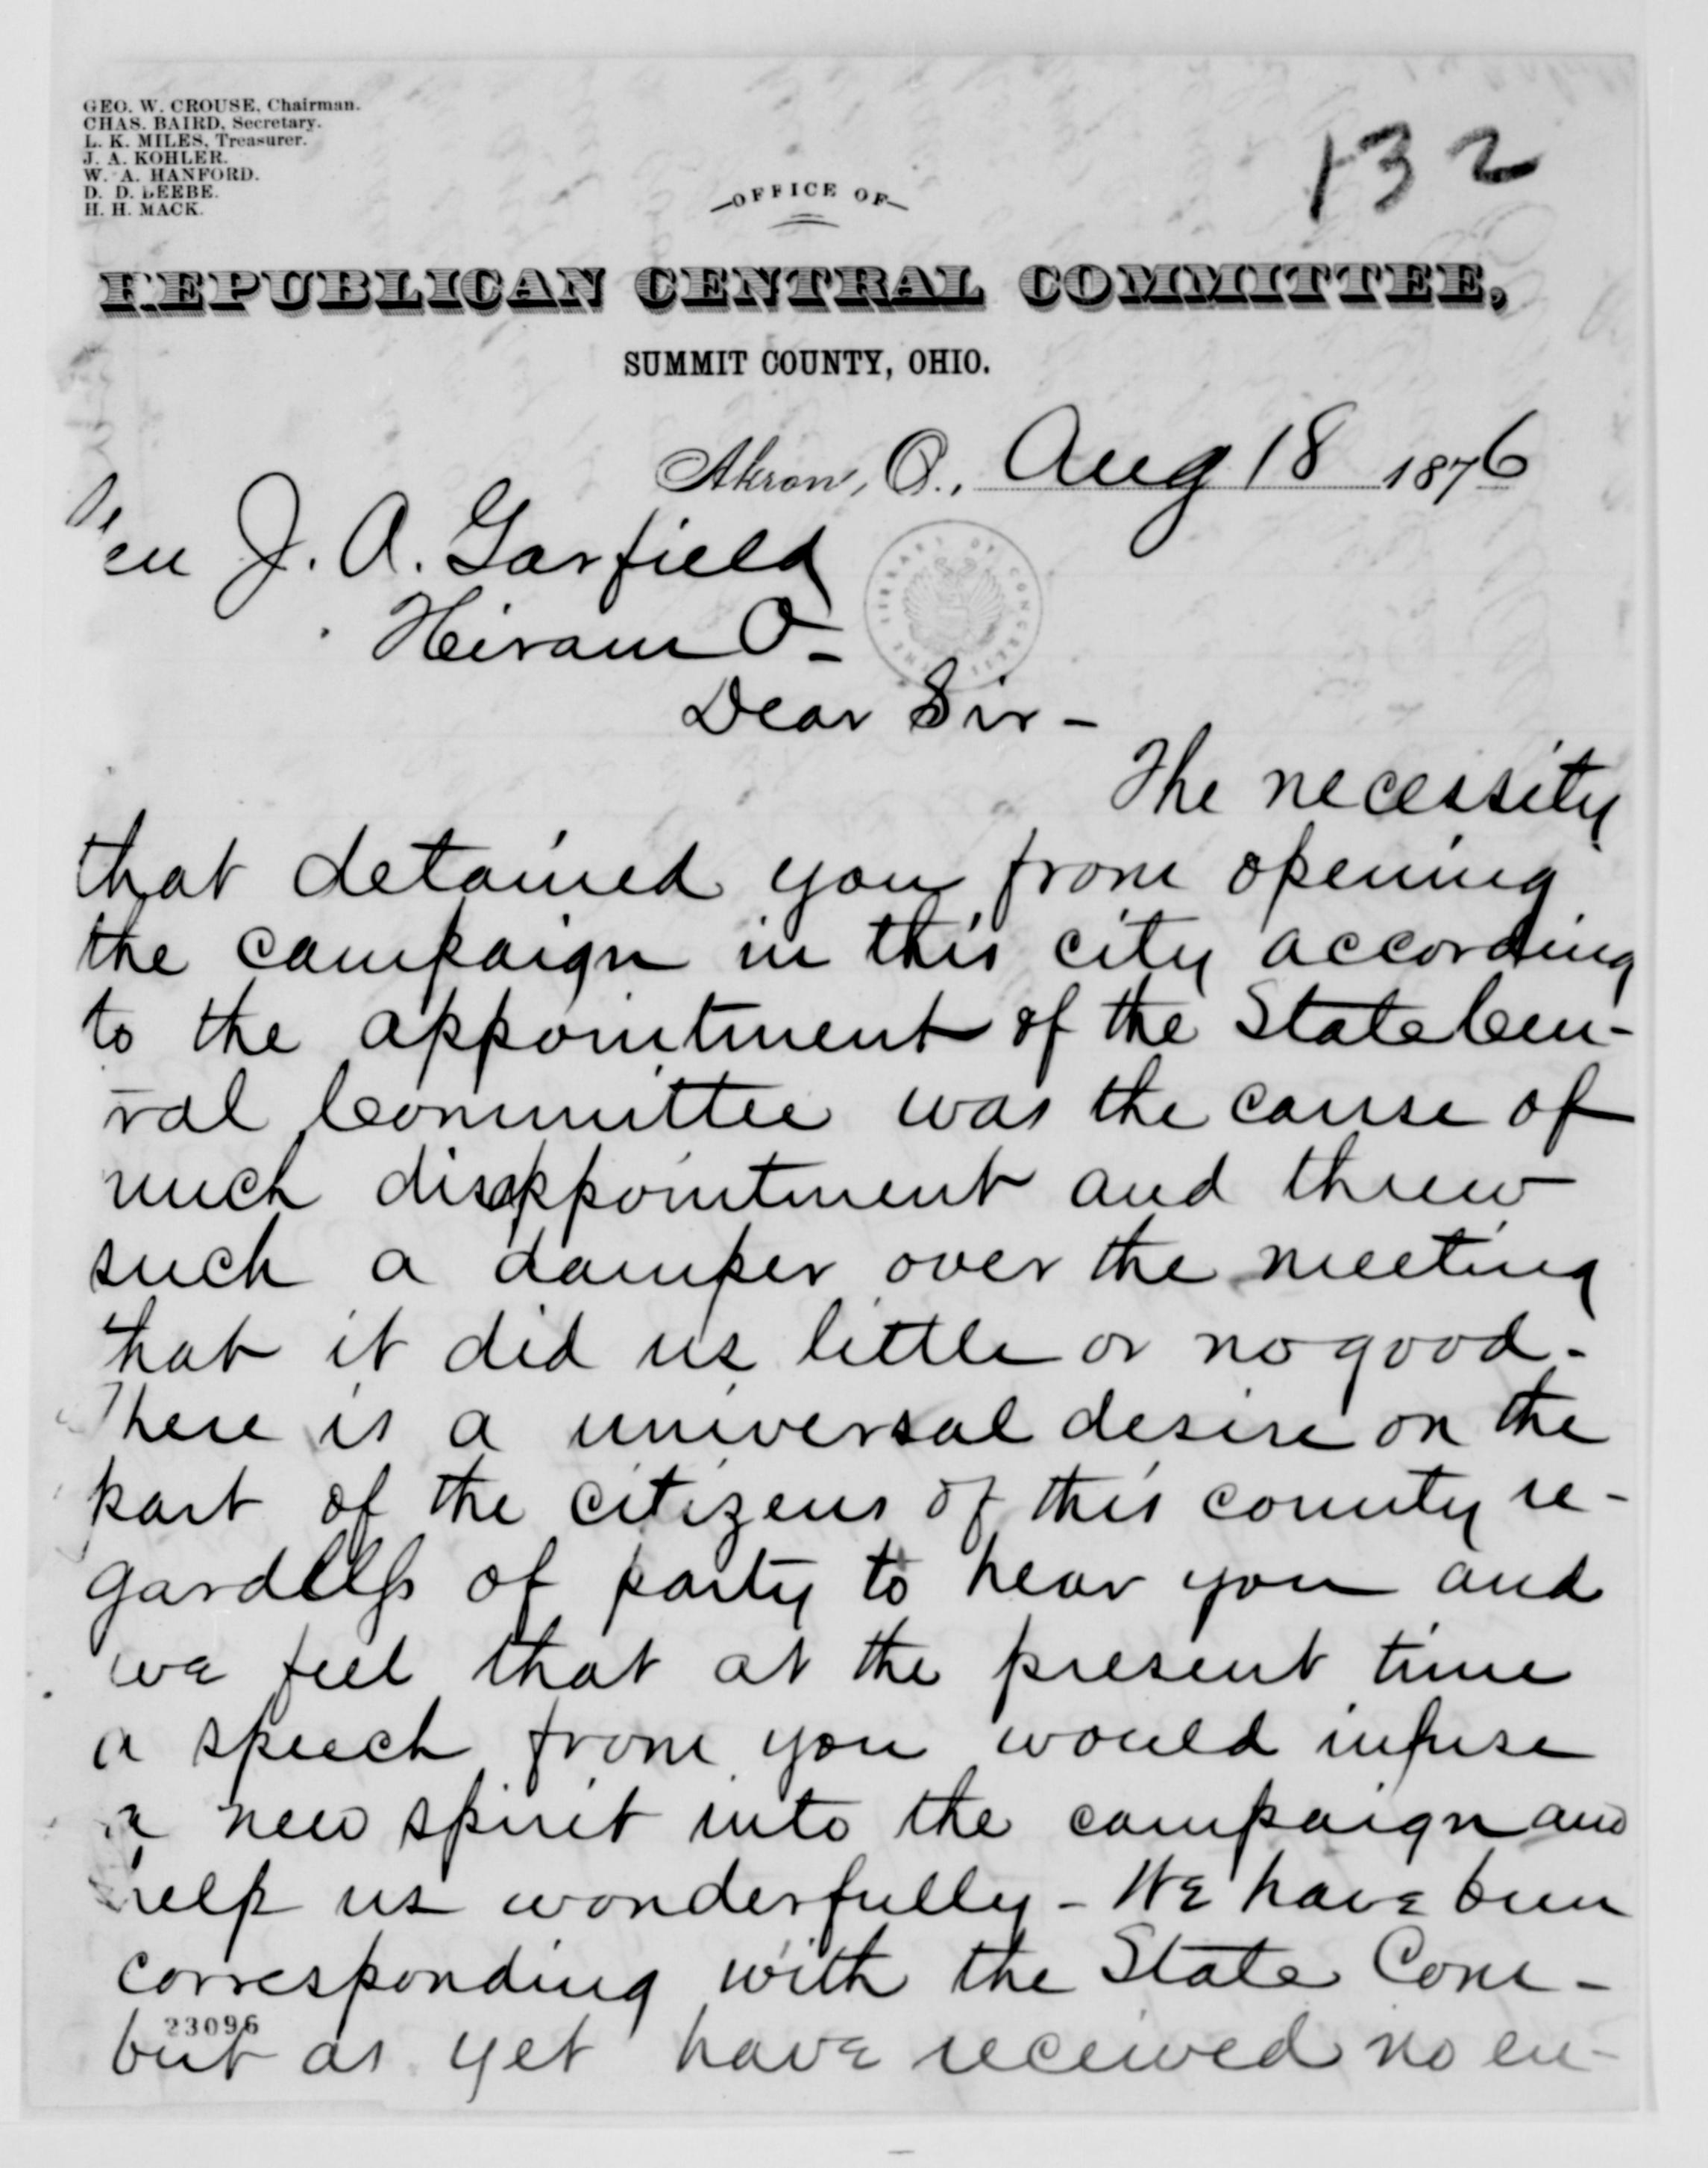 GEO. W. CROUSE, Chairman.
CHAS. BAIRD, Secretary.
L. K. MILES, Treasurer.
J. A. KOHLER.
W. A. HANFORD.
D. D. BEEBE.
H. H. MACK.
132
OFFICE OF
REPUBLICAN CENTRAL COMMITTEE,
SUMMIT COUNTY, OHIO.
Akron, O., Aug 18 1876
Gen J. A. Garfield
Hiram O-
Dear Sir -
The necessity
that detained you from opening
the campaign in this city according
to the appointment of the State Cen-
ral Committee was the cause of
much disappointment and threw
such a damper over the meeting
that it did us little or no good -
There is a universal desire on the
part of the citizens of this county re-
gardless of party to hear you and
we feel that at the present time
a speech from you would infuse
a new spirit into the campaign and
help us wonderfully - We have been
corresponding with the State Com -
23096
but as yet have received no en-